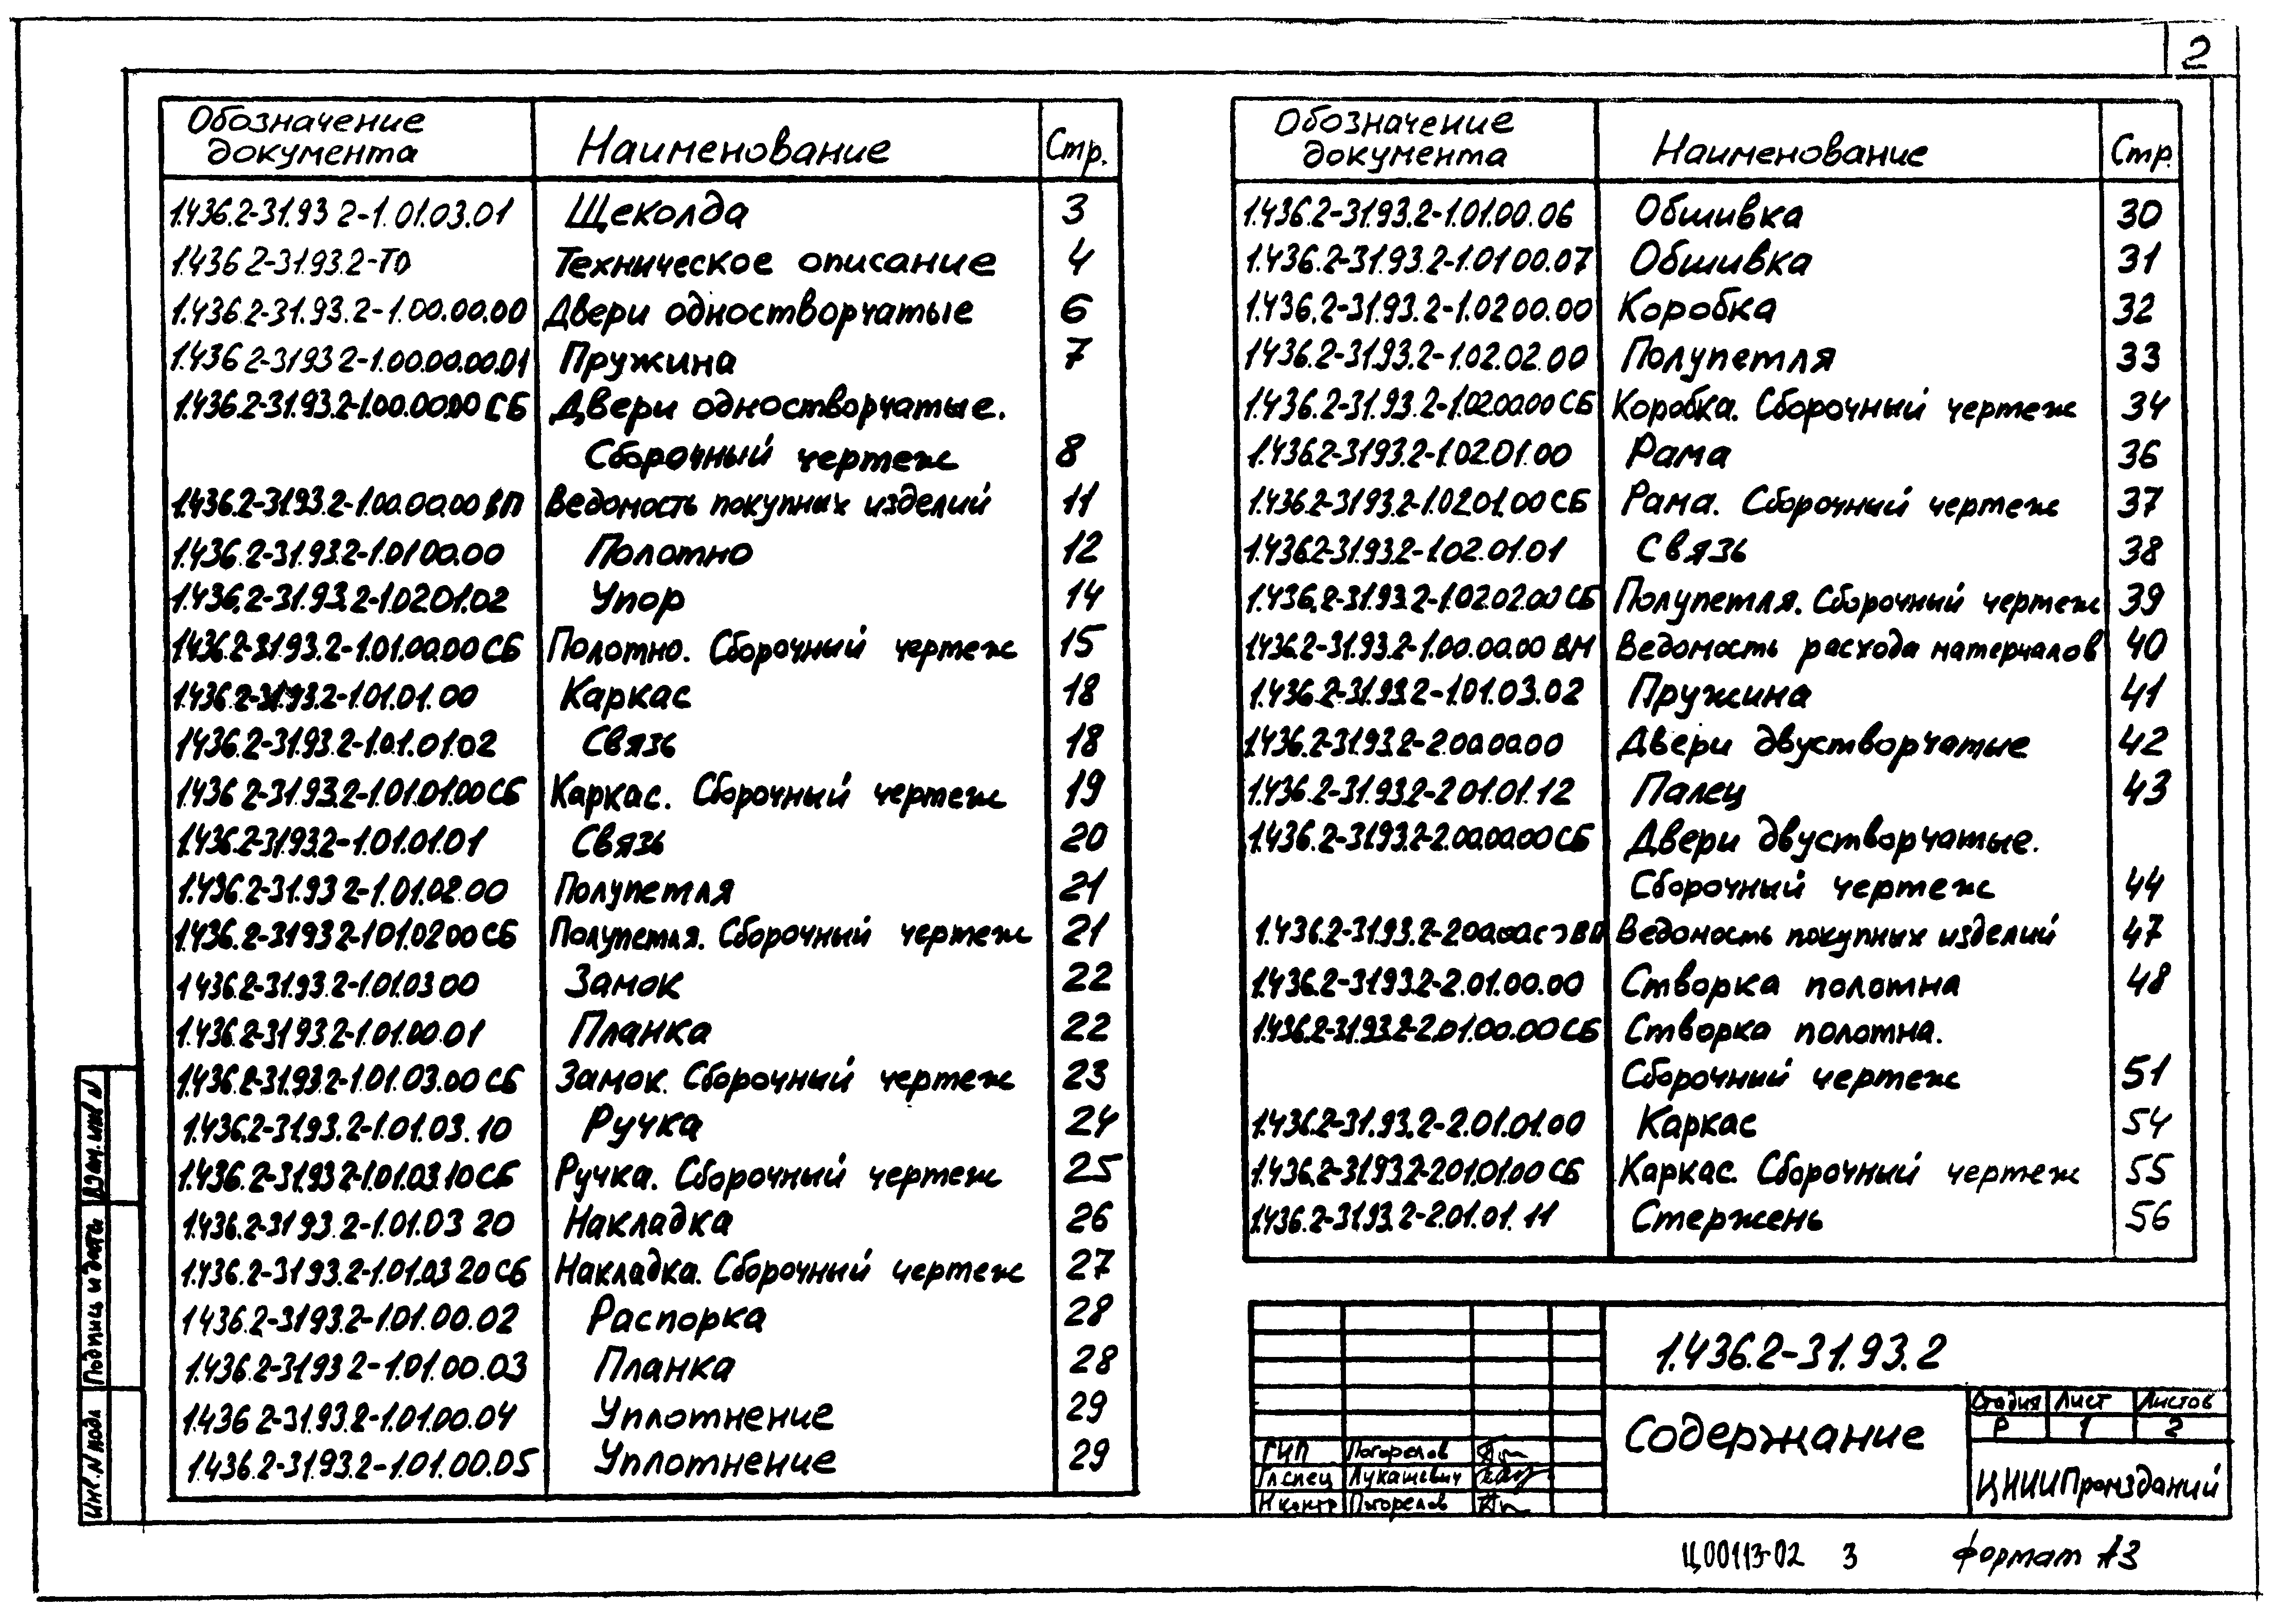 2
Обозначение документа Наименование Стр.
1.436.2-31.93 2-1.01.03.01 Щеколда 3
1.436 2-31.93.2-ТО Техническое описание 4
1.436.2-31.93.2-1.00.00.00 Двери одностворчатые 6
1.436 2-3193 2-1.00.00.00.01 Пружина 7
1.436.2-31.93.2-1.00.00.00 СБ Двери одностворчатые.
Сборочный чертеж 8
1.436.2-31.93.2-1.00.00.00 ВП Ведомость покупных изделий 11
1.436.2-31.93.2-1.01 00.00 Полотно 12
1.436.2-31.93.2-1.02.01.02 Упор 14
1.436.2-31.93.2-1.01.00.00 СБ Полотно. Сборочный чертеж 15
1.436.2-31.93.2-1.01.01.00 Каркас 18
1.436.2-31.93.2-1.01.01.02 Связь 18
1.436 2-31.93.2-1.01.01.00 СБ Каркас. Сборочный чертеж 19
1.436.2-31.93.2-1.01.01.01 Связь 20
1.436.2-31.93 2-1.01.02.00 Полупетля 21
1.436.2-3193 2-1.01.02 00 СБ Полупетля. Сборочный чертеж 21
1 436.2-31.93.2-1.01.03 00 Замок 22
1.436.2-31 93.2-1.01.00.01 Планка 22
1.436.2-31.93.2-1.01.03.00 СБ Замок. Сборочный чертеж 23
1.436.2-31.93.2-1.01.03.10 Ручка 24
1.436.2-31.93 2-1.01.03.10 СБ Ручка. Сборочный чертеж 25
1.436.2-31 93.2-1.01.03 20 Накладка 26
1.436.2-31 93.2-1.01.03 20 СБ Накладка. Сборочный чертеж 27
1 436.2-31 93.2-1.01.00.02 Распорка 28
1.436.2-3193 2-1.01.00.03 Планка 28
1.436 2-31.93.2-1.01.00.04 Уплотнение 29
1.436.2-3193.2-1.01.00.05 Уплотнение 29
Обозначение документа Наименование Стр.
1.436.2-31.93.2-1.01.00.06 Обшивка 30
1.436.2-31.93.2-1.01 00.07 Обшивка 31
1.436.2-31.93.2-1.02 00.00 Коробка 32
1436.2-31.93.2-1.02.02.00 Полупетля 33
1.436.2-31.93.2-1.02.00.00 СБ Коробка. Сборочный чертеж 34
1.436.2-3193.2-1.02.01.00 Рама 36
1.436.2-3193.2-1.02.01.00 СБ Рама. Сборочный чертеж 37
1.4362-31.93.2-1.02.01.01 Связь 38
1.436.2-31.93.2-1.02.02.00 СБ Полупетля. Сборочный чертеж 39
1.436.2-31.93.2-1.00.00.00 ВМ Ведомость расхода материалов 40
1.436.2-31.93.2-1.01.03.02 Пружина 41
1.436.2-31.93.2-2.00.00.00 Двери двустворчатые 42
1.436.2-31.93.2-2 01.01.12 Палец 43
1.436.2-31.93.2-2.00.00.00 СБ Двери двустворчатые.
Сборочный чертеж 44
1.436.2-31.93.2-2 Ведомость покупных изделий 47
1.436.2-3193.2-2.01.00.00 Створка полотна 48
1.436.2-31.93.2-2.01.00.00 СБ Створка полотна.
Сборочный чертеж 51
1.436.2-31.93.2-2.01.01.00 Каркас 54
1.436.2-3193.2-2.01.01.00 СБ Каркас. Сборочный чертеж 55
1.436.2-31.93.2-2.01.01.11 Стержень 56
1.436.2-31.93.2
Содержание
Стадия Лист Листов
Р 1 2
ЦНИИПромзданий
ГИП Погорелов
Гл спец Лукашевич
Н контр Погорелов
Взам. инв N
Подпись и дата
Инв. N подл
Ц00113-02 3 Формат А3